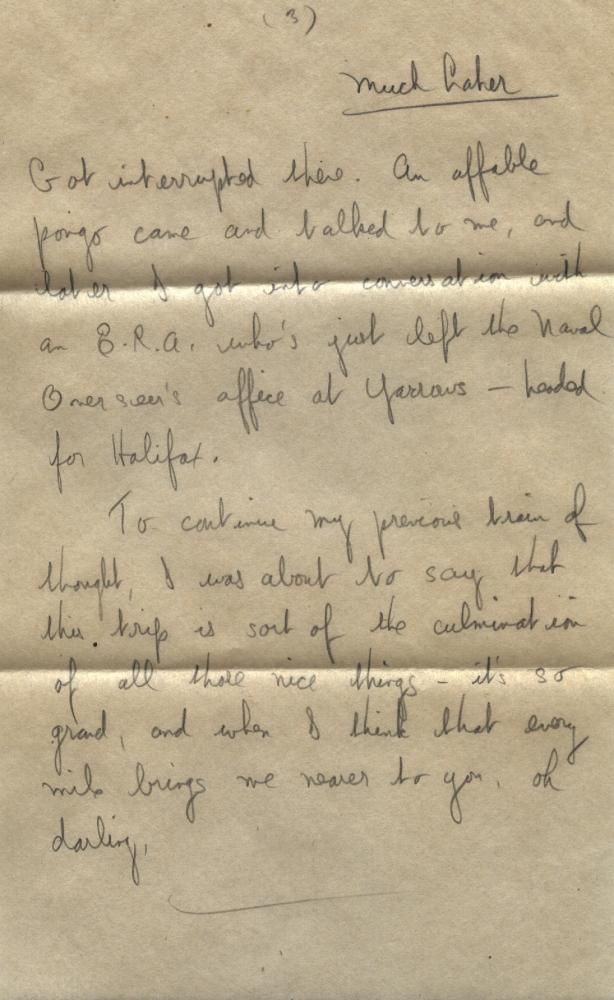 (3)
Much Later
Got interrupted there. An affable
pongo came and talked to me, and
later I got into conversation with
an E.R.A. who's just left the Naval
Overseer's office at Yarrows – headed
for Halifax.
To continue my previous train of
thought, I was about to say that
this trip is sort of the culmination
of all those nice things – it's so
grand, and when I think that every
mile brings me nearer to you, oh
darling,